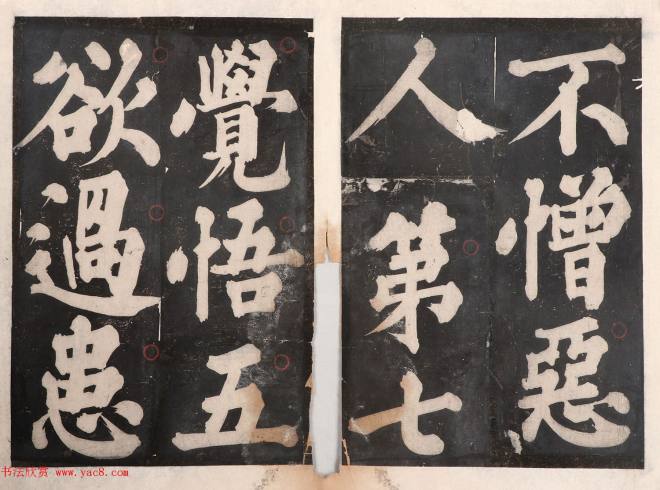 不憎惡
人第七
覺悟五
欲過患
书法欣赏 www.yac8.com